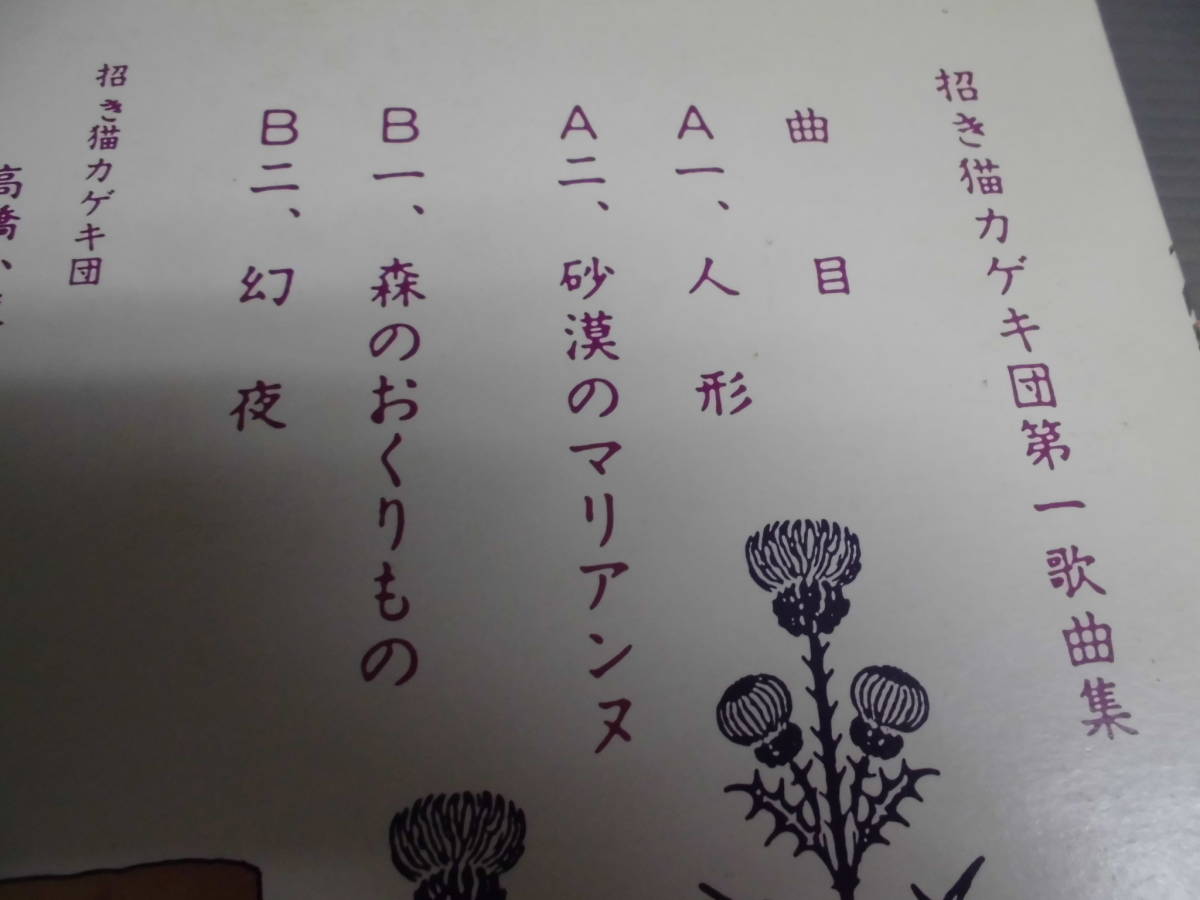 招き猫カゲキ団第一歌曲集
曲目
A一、人形
A二、砂漠のマリアンヌ
B一、森のおくりもの
B二、幻夜
招き猫カゲキ団
高橋、